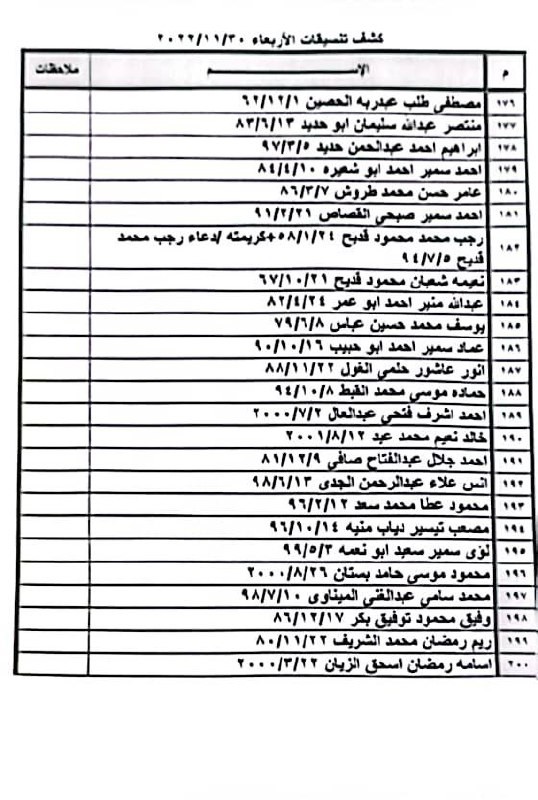 كشف تنسيقات الأربعاء ٢٠٢٢/١١/٣٠
م الإســـــــم ملاحظات
١٧٦ مصطفى طلب عبدربه الحصين ٦٢/١٢/١
١٧٧ منتصر عبدالله سليمان ابو حديد ٨٣/٦/١٣
١٧٨ ابراهيم احمد عبدالحمن حديد ٩٧/٣/٥
١٧٩ احمد سمير احمد ابو شعيره ٨٤/٤/١٠
١٨٠ عامر حسن محمد طروش ٨٦/٣/٧
١٨١ احمد سمير صبحي القصاص ٩١/٢/٢١
١٨٢ رجب محمد محمود قديح ٥٨/١/٢٤+كريمته /دعاء رجب محمد
قديح ٩٤/٧/٥
١٨٣ نعيمه شعبان محمود قديح ٦٧/١٠/٢١
١٨٤ عبدالله منير احمد ابو عمر ٨٢/٤/٢٤
١٨٥ يوسف محمد حسين عباس ٧٩/٦/٨
١٨٦ عماد سمير احمد ابو حبيب ٩٠/١٠/١٦
١٨٧ انور عاشور حلمي الغول ٨٨/١١/٢٢
١٨٨ حماده موسي محمد القبط ٩٤/١٠/٨
١٨٩ احمد اشرف فتحي عبدالعال ٢٠٠٠/٧/٢
١٩٠ خالد نعيم محمد عبد ٢٠٠١/٨/١٢
١٩١ احمد جلال عبدالفتاح صافي ٨١/١٢/٩
١٩٢ انس علاء عبدالرحمن الجدى ٩٨/٦/١٣
١٩٣ محمود عطا محمد سعد ٩٦/٢/١٢
١٩٤ مصعب تيسير دياب منيه ٩٦/١٠/١٤
١٩٥ لؤى سمير سعيد ابو نعمه ٩٩/٥/٣
١٩٦ محمود موسي حامد بستان ٢٠٠٠/٨/٢٦
١٩٧ محمد سامي عبدالغني الميناوى ٩٨/٧/١٠
١٩٨ وفيق محمود توفيق بكر ٨٦/١٢/١٧
١٩٩ ريم رمضان محمد الشريف ٨٠/١١/٢٢
٢٠٠ اسامه رمضان اسحق الزيان ٢٠٠٠/٣/٢٢